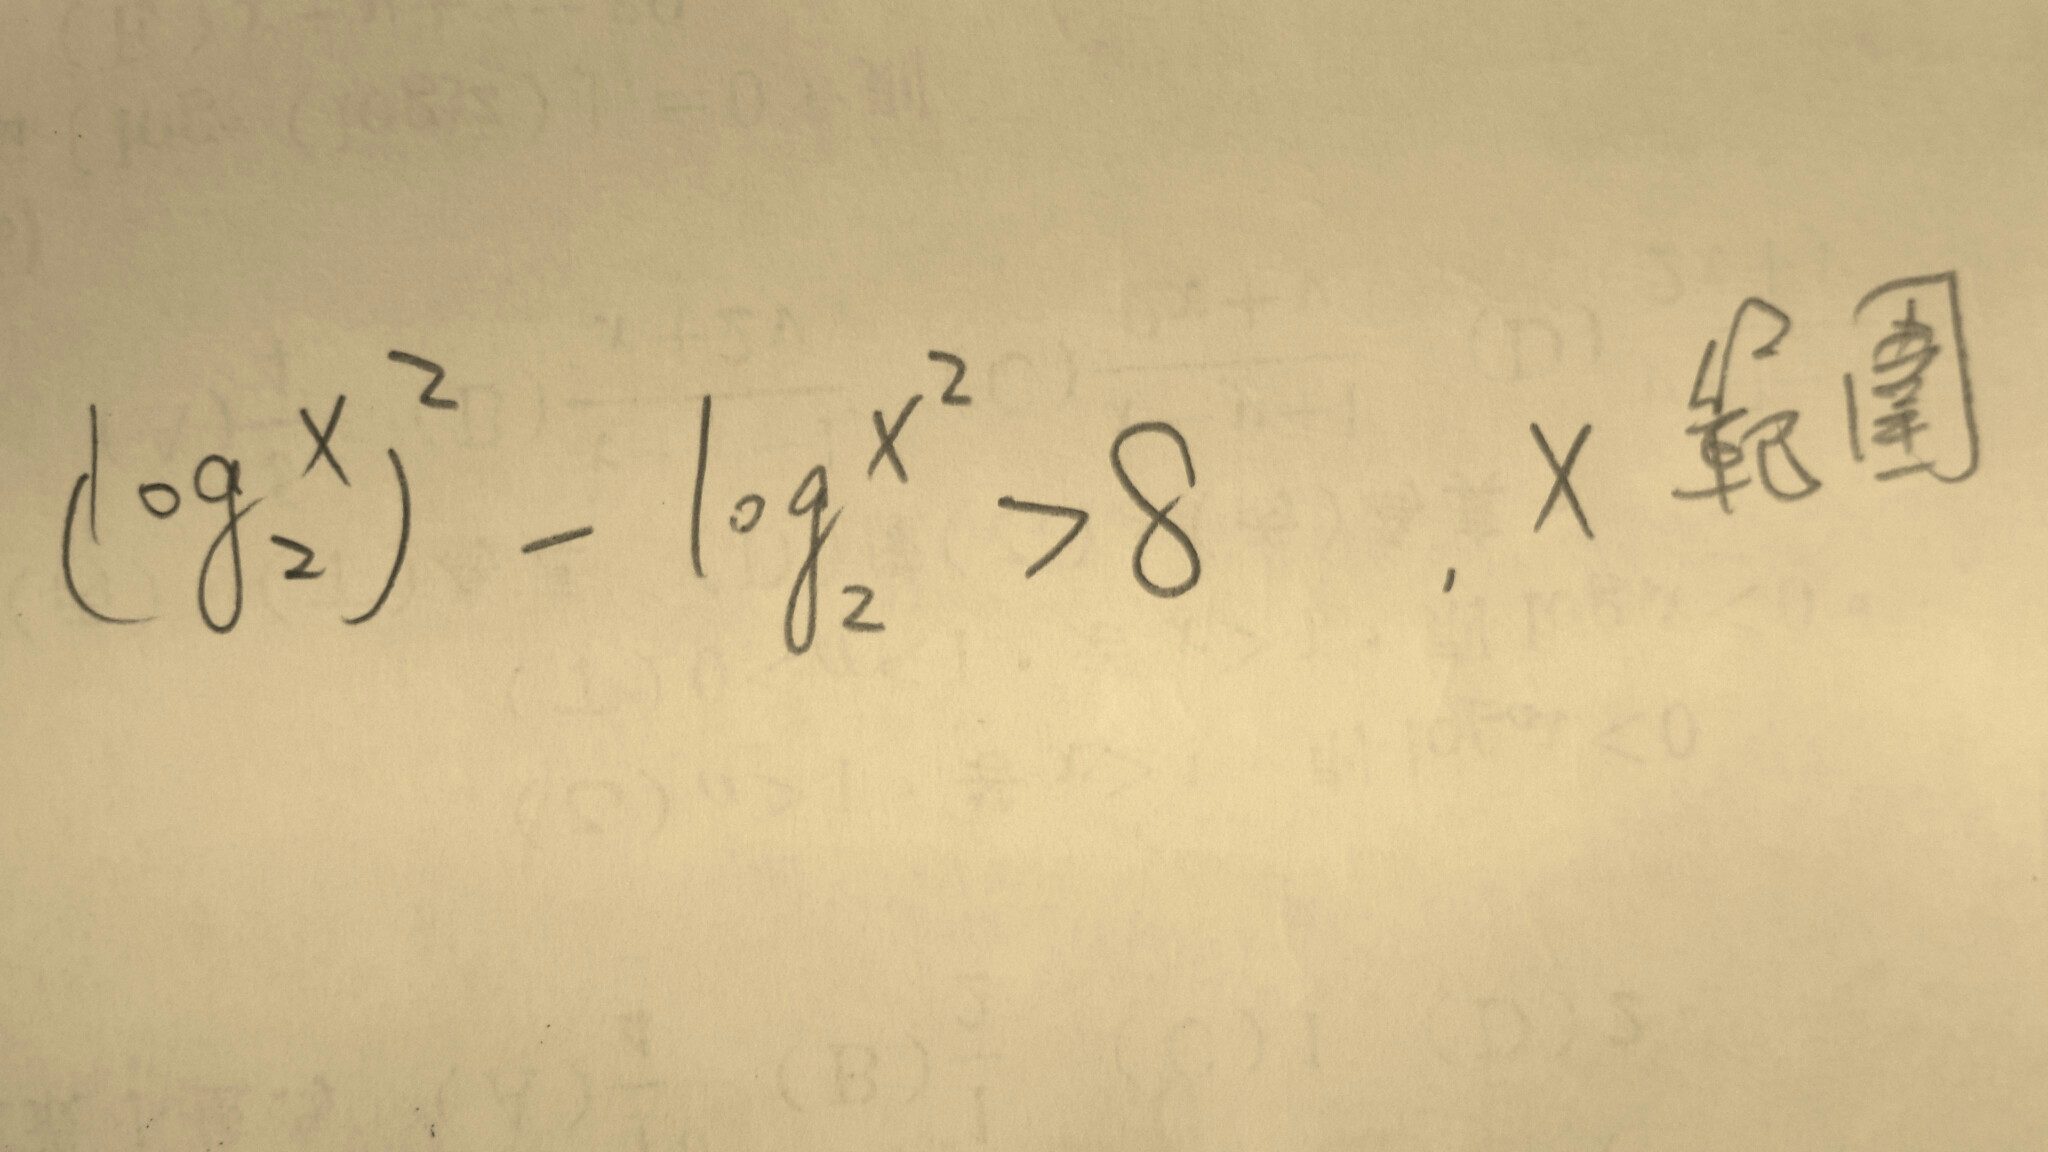 (log₂ˣ)² - log₂ˣ² > 8 , x 範圍